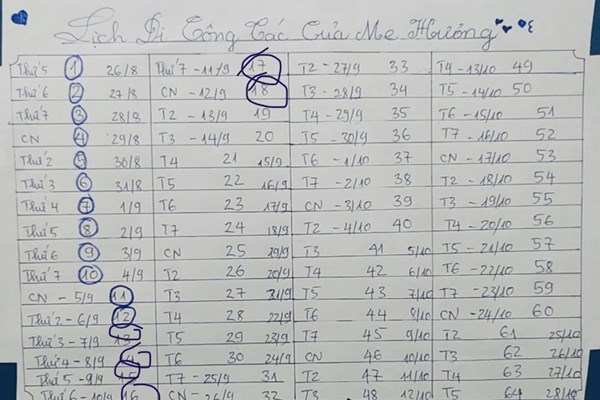 Lịch Đi Công Tác Của Mẹ Hương
Thứ 5 1 26/8 Thứ 7 - 11/9 17 T2 - 27/9 33 T4 - 13/10 49
Thứ 6 2 27/8 CN - 12/9 18 T3 - 28/9 34 T5 - 14/10 50
Thứ 7 3 28/8 T2 - 13/9 19 T4 - 29/9 35 T6 - 15/10 51
CN 4 29/8 T3 - 14/9 20 T5 - 30/9 36 T7 - 16/10 52
Thứ 2 5 30/8 T4 21 15/9 T6 - 1/10 37 CN - 17/10 53
Thứ 3 6 31/8 T5 22 16/9 T7 - 2/10 38 T2 - 18/10 54
Thứ 4 7 1/9 T6 23 17/9 CN - 3/10 39 T3 - 19/10 55
Thứ 5 8 2/9 T7 24 18/9 T2 - 4/10 40 T4 - 20/10 56
Thứ 6 9 3/9 CN 25 19/9 T3 41 5/10 T5 - 21/10 57
Thứ 7 10 4/9 T2 26 20/9 T4 42 6/10 T6 - 22/10 58
CN - 5/9 11 T3 27 21/9 T5 43 7/10 T7 - 23/10 59
Thứ 2 - 6/9 12 T4 28 22/9 T6 44 8/10 CN - 24/10 60
Thứ 3 - 7/9 13 T5 29 23/9 T7 45 9/10 T2 61 25/10
Thứ 4 - 8/9 14 T6 30 24/9 CN 46 10/10 T3 62 26/10
Thứ 5 - 9/9 15 T7 - 25/9 31 T2 47 11/10 T4 63 27/10
Thứ 6 - 10/9 16 CN - 26/9 32 T3 48 12/10 T5 64 28/10